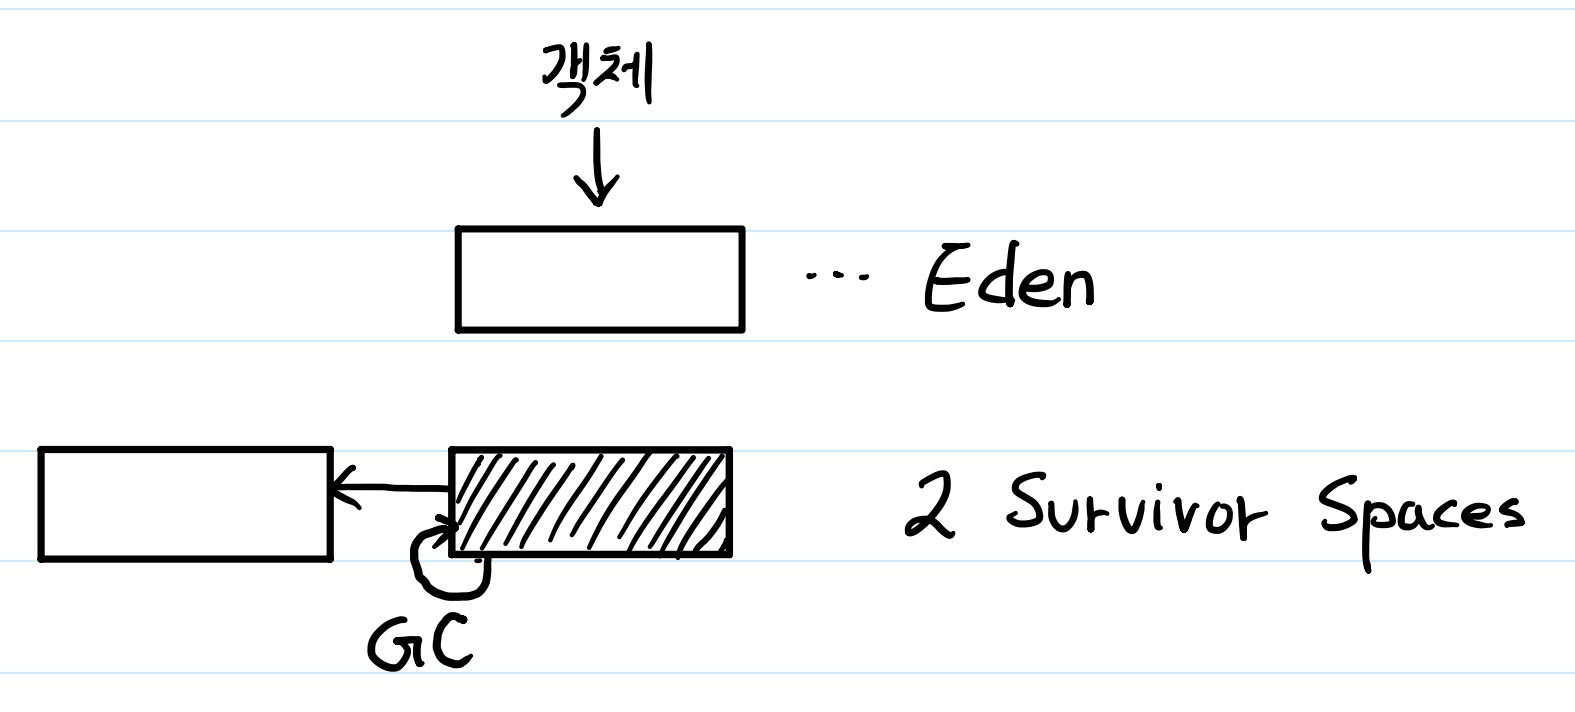 객체
... Eden
2 Survivor Spaces
GC